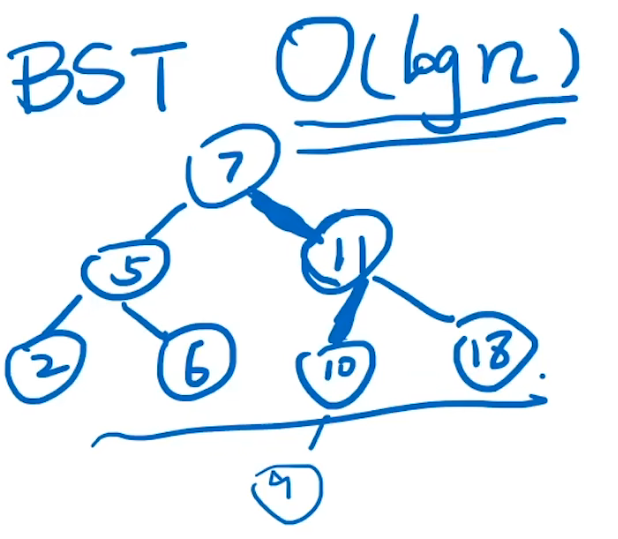 BST O(log n)
7
5 11
2 6 10 18
9